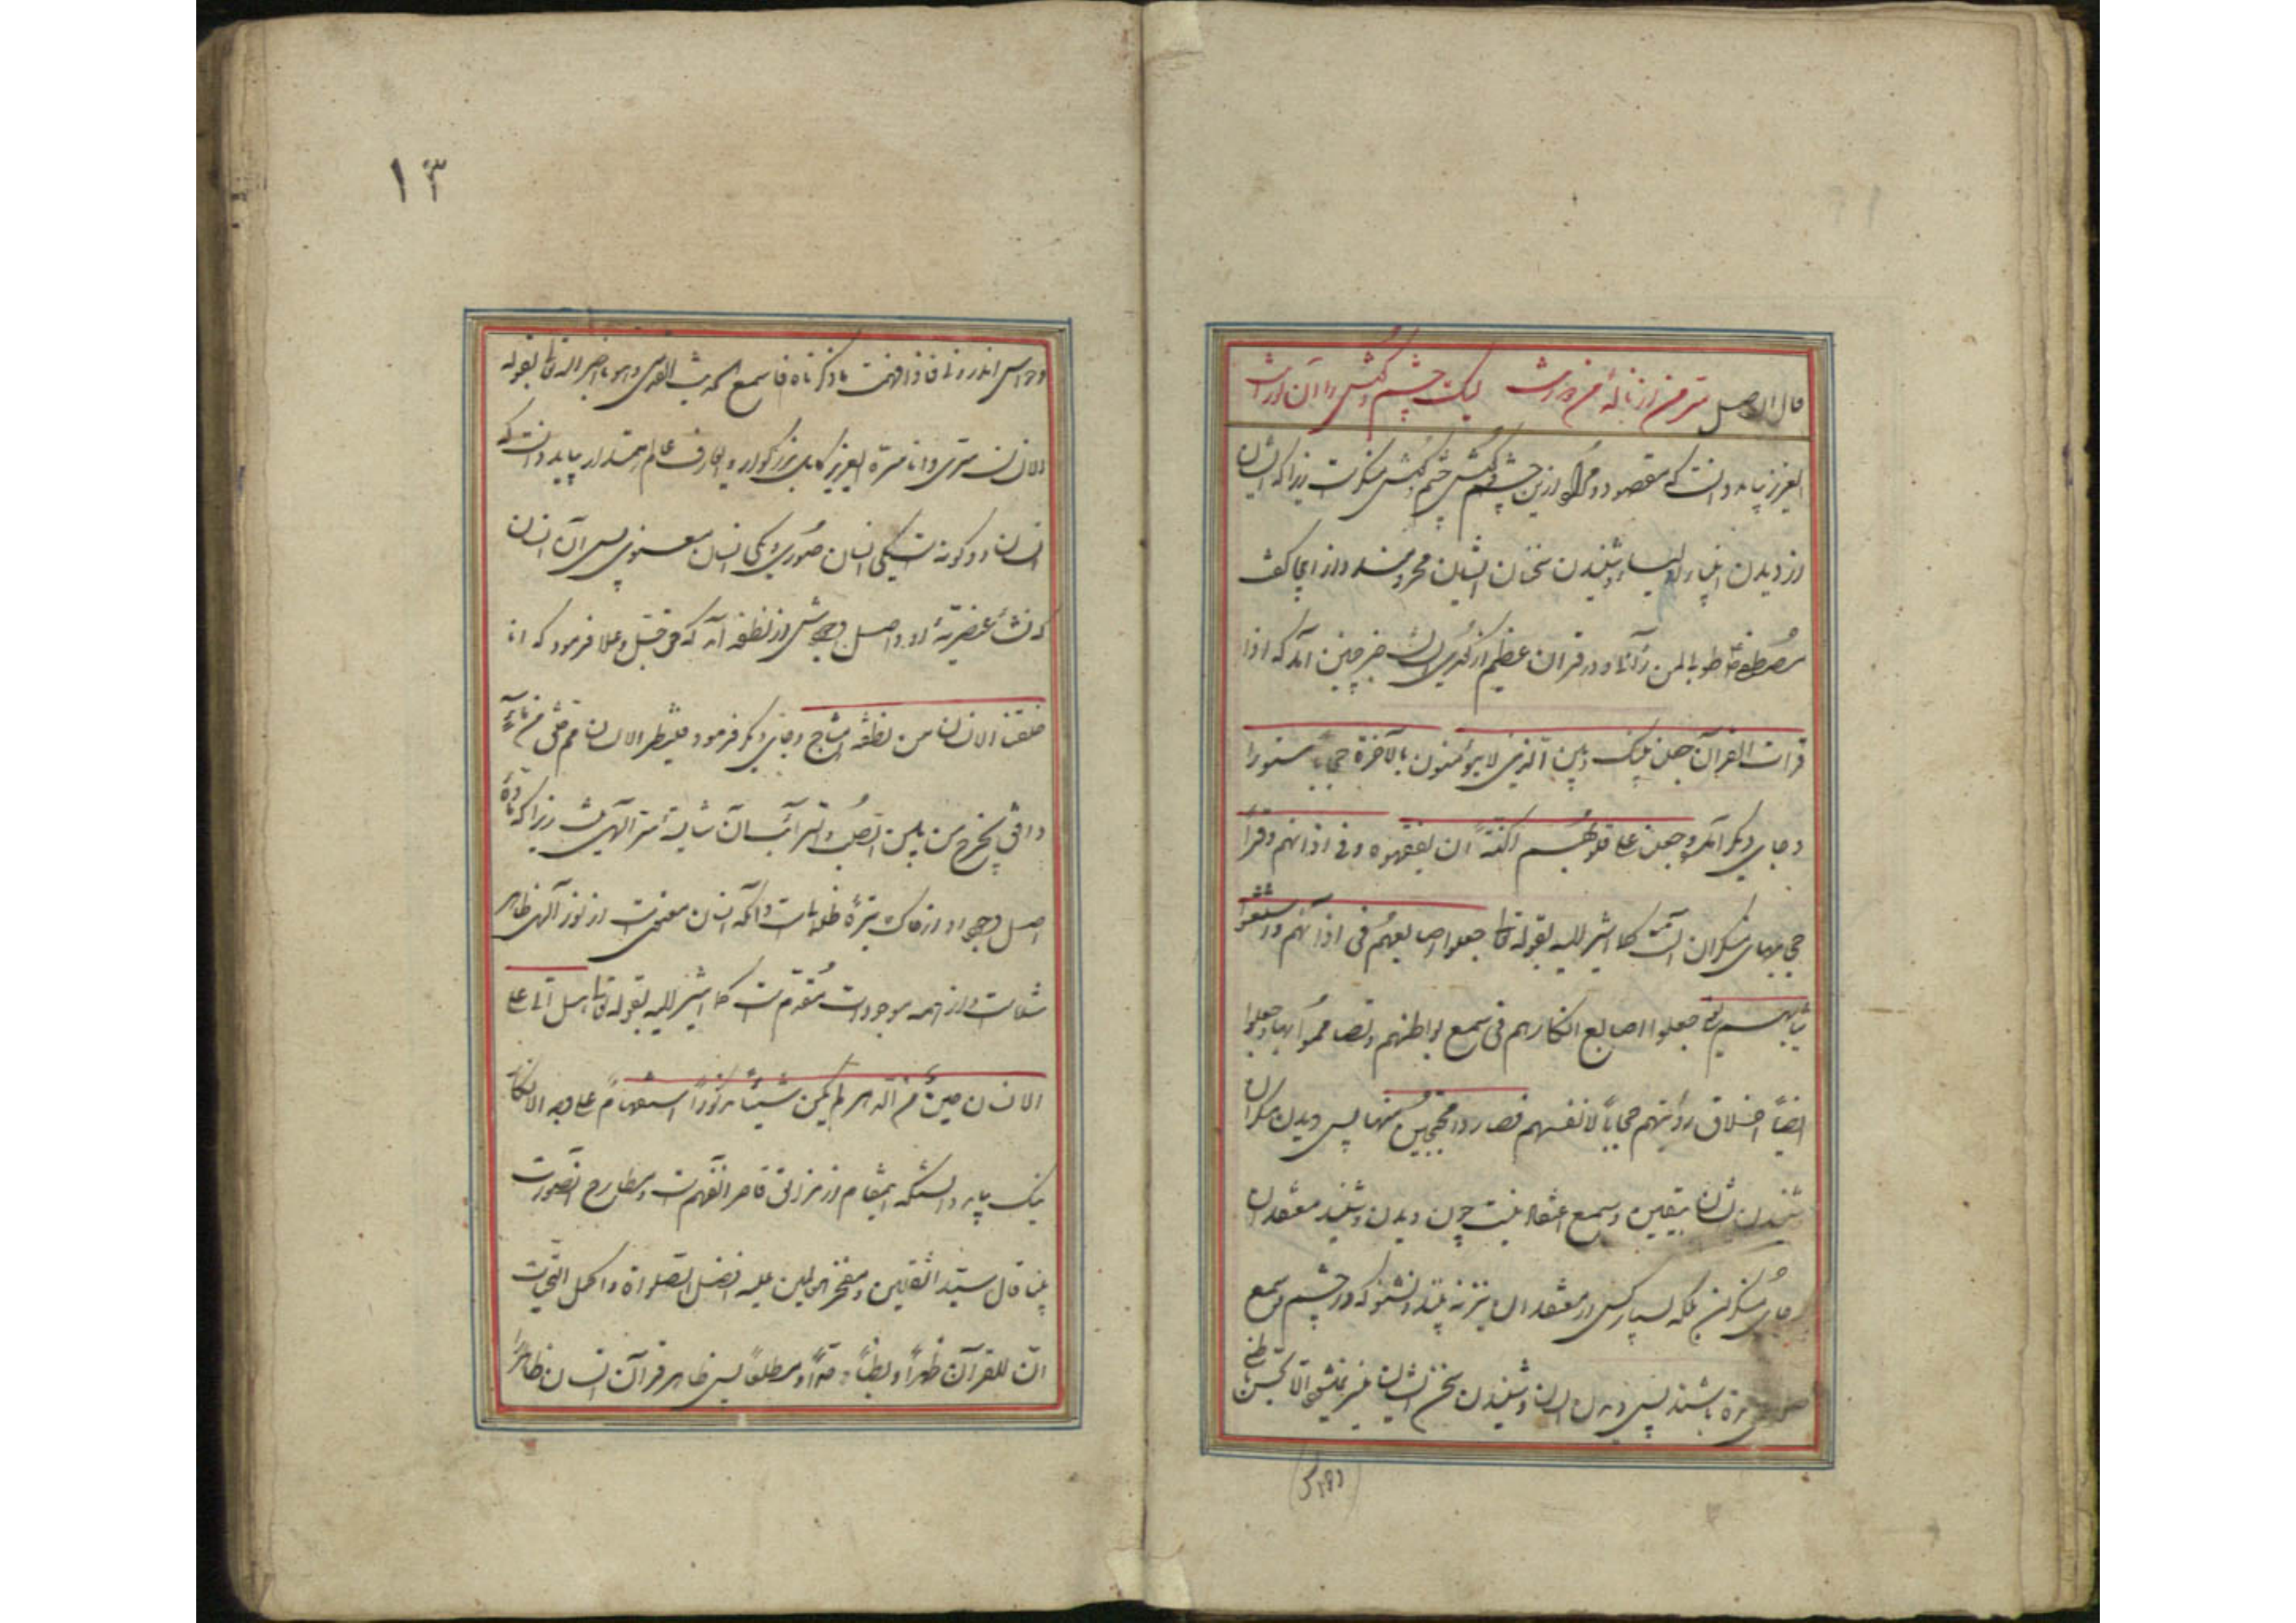 قال الاصل سر من از ناله من دور نیست لیک چشم و گوش را آن نور نیست
ایعزیز بباید دانست که مقصود و مراد ازین چشم و گوش چشم و گوش منکرست زیرا که ایشان
از دیدن انبیاء و اولیاء و شنیدن سخنان ایشان محرومند و از اینجا گفت
مصطفی طوبا لمن رآنا و در قران عظیم از کری ایشان خبر چنین آمد که اذا
قرات القرآن جعلنا بینک و بین الذین لا یؤمنون بالآخرة حجابا مستورا
و جای دیکر آمد وجعلنا علی قلوبهم اکنة ان یفقهوه وفی اذانهم وقرا
حجابهای منکران است کما اشیر الیه بقوله تعا جعلوا اصابعهم فی اذانهم واستغشوا
ثیابهم ای جعلوا اصابع انکارهم فی سمع بواطنهم وتصامموا بها وجعلوا
ایضا اخلاق رؤیتهم حجابا لانفسهم فصاروا محتجبین منها پس دیدن منکران
شنیدن شان بیقین و سمع اعتقاد نیست چون دیدن و شنیدن معتقدان
جای منکران بلکه بسیار کس از معتقدان نیز نه بیند و نشنود که در چشم و سمع
باشند پس دیدن ایشان و شنیدن سخن ایشان میسر نمیشود الا بحسن باطنی
وحواس
۱۳
وحواس اندرونی فاذا فهمت ما ذکرناه فاسمع الحدیث القدسی وهو ما اخبر الله تعا بقوله
الانسان سری وانا سره ایعزیز کامل بزرکوار و ایعارف عالم مقدار بباید دانست که
انسان دو کونه است یکی انسان صوری و یکی انسان معنوی پس آن انسان
که نشأ عنصریة دارد و اصل وجودش از نطفه آمد که حق جل و علا فرمود که انا
خلقنا الانسان من نطفة امشاج و جای دیکر فرمود فلینظر الانسان مم خلق من ماء
دافق یخرج من بین الصلب والترائب آن شایسته سر الهی نیست زیرا که ماده
اصل وجود او از خاک تیرهٔ ظلمانست و آنکه انسان معنویست از نور الهی ظاهر
شدست و از همه موجودات مقدم است کما اشیر الیه بقوله تعا هل اتی علی
الانسان حین من الدهر لم یکن شیئا مذکورا استفهام علی وجه الانکار
نیک بباید دانست که اینمقام از مزالق قاصر الفهم است و مطارح التصورت
بنا قال سید الثقلین و مفخر المرسلین علیه افضل الصلواة واکمل التحیات
ان للقرآن ظهرا وبطنا وحدا ومطلعا پس ظاهر قرآن انسان ظاهر را